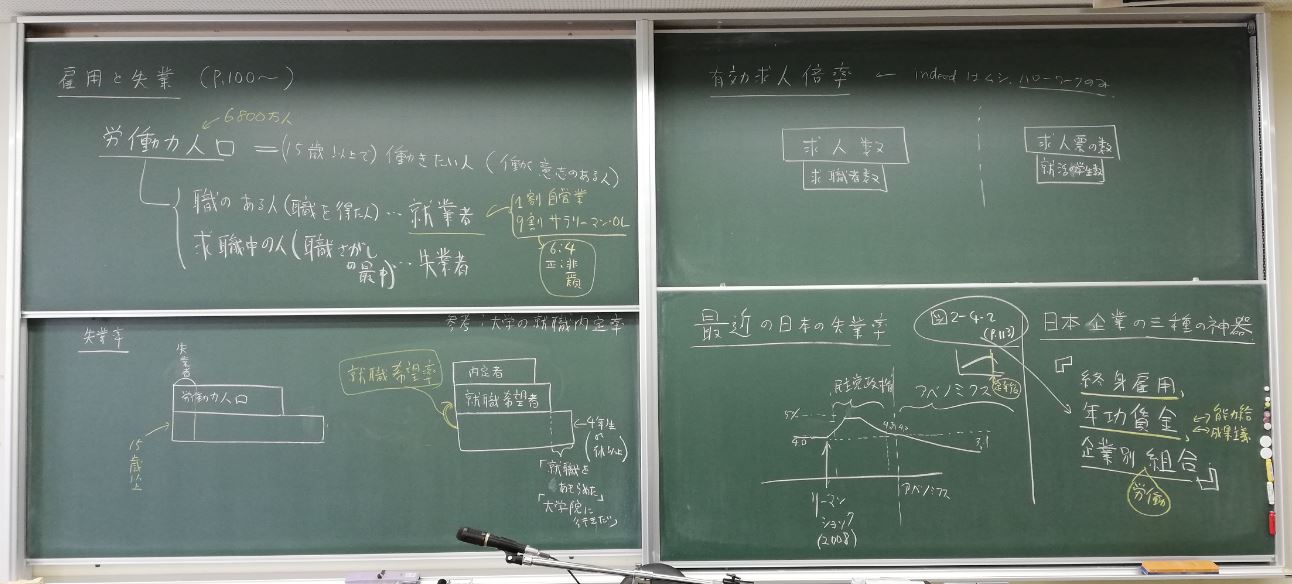 雇用と失業 (P.100〜)
6800万人
労働力人口 = (15歳以上で) 働きたい人 (働く意志のある人)
職のある人(職を得た人)…就業者
1割 自営業
9割 サラリーマン・OL
6:4
正:非
求職中の人(職さがしの最中)…失業者
失業率
失業者
労働力人口
15歳以上
参考:大学の就職内定率
就職希望率
内定者
就職希望者
4年生
「就職を
あきらめた」
「大学院に
有効求人倍率 ← indeedはムシ、ハローワークのみ
求人数
求職者数
求人票の数
就活学生数
最近の日本の失業率
図2-4-2
(P.113)
民主党政権
アベノミクス
5%
4.0
リーマン
ショック
(2008)
アベノミクス
日本企業の三種の神器
『終身雇用、
年功賃金、
能力給
成果主義
企業別組合』
労働